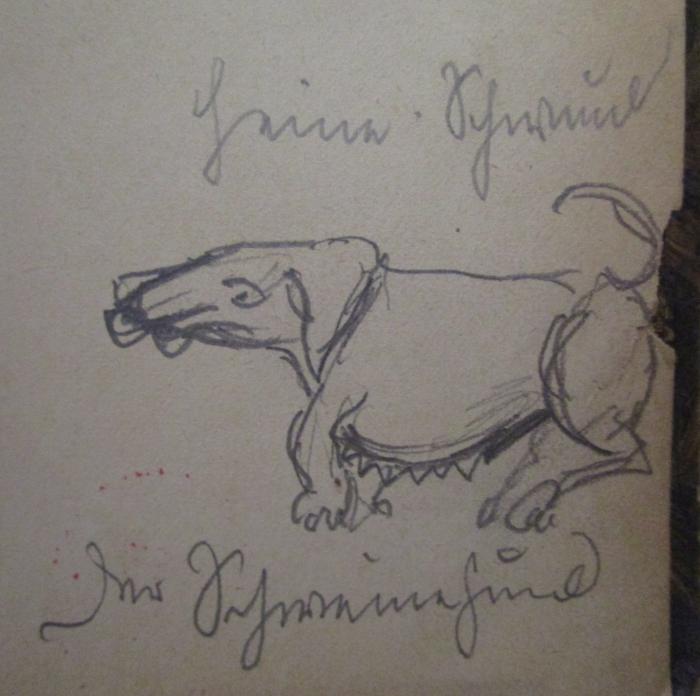 Heine · Schwund
Der Schweinehund